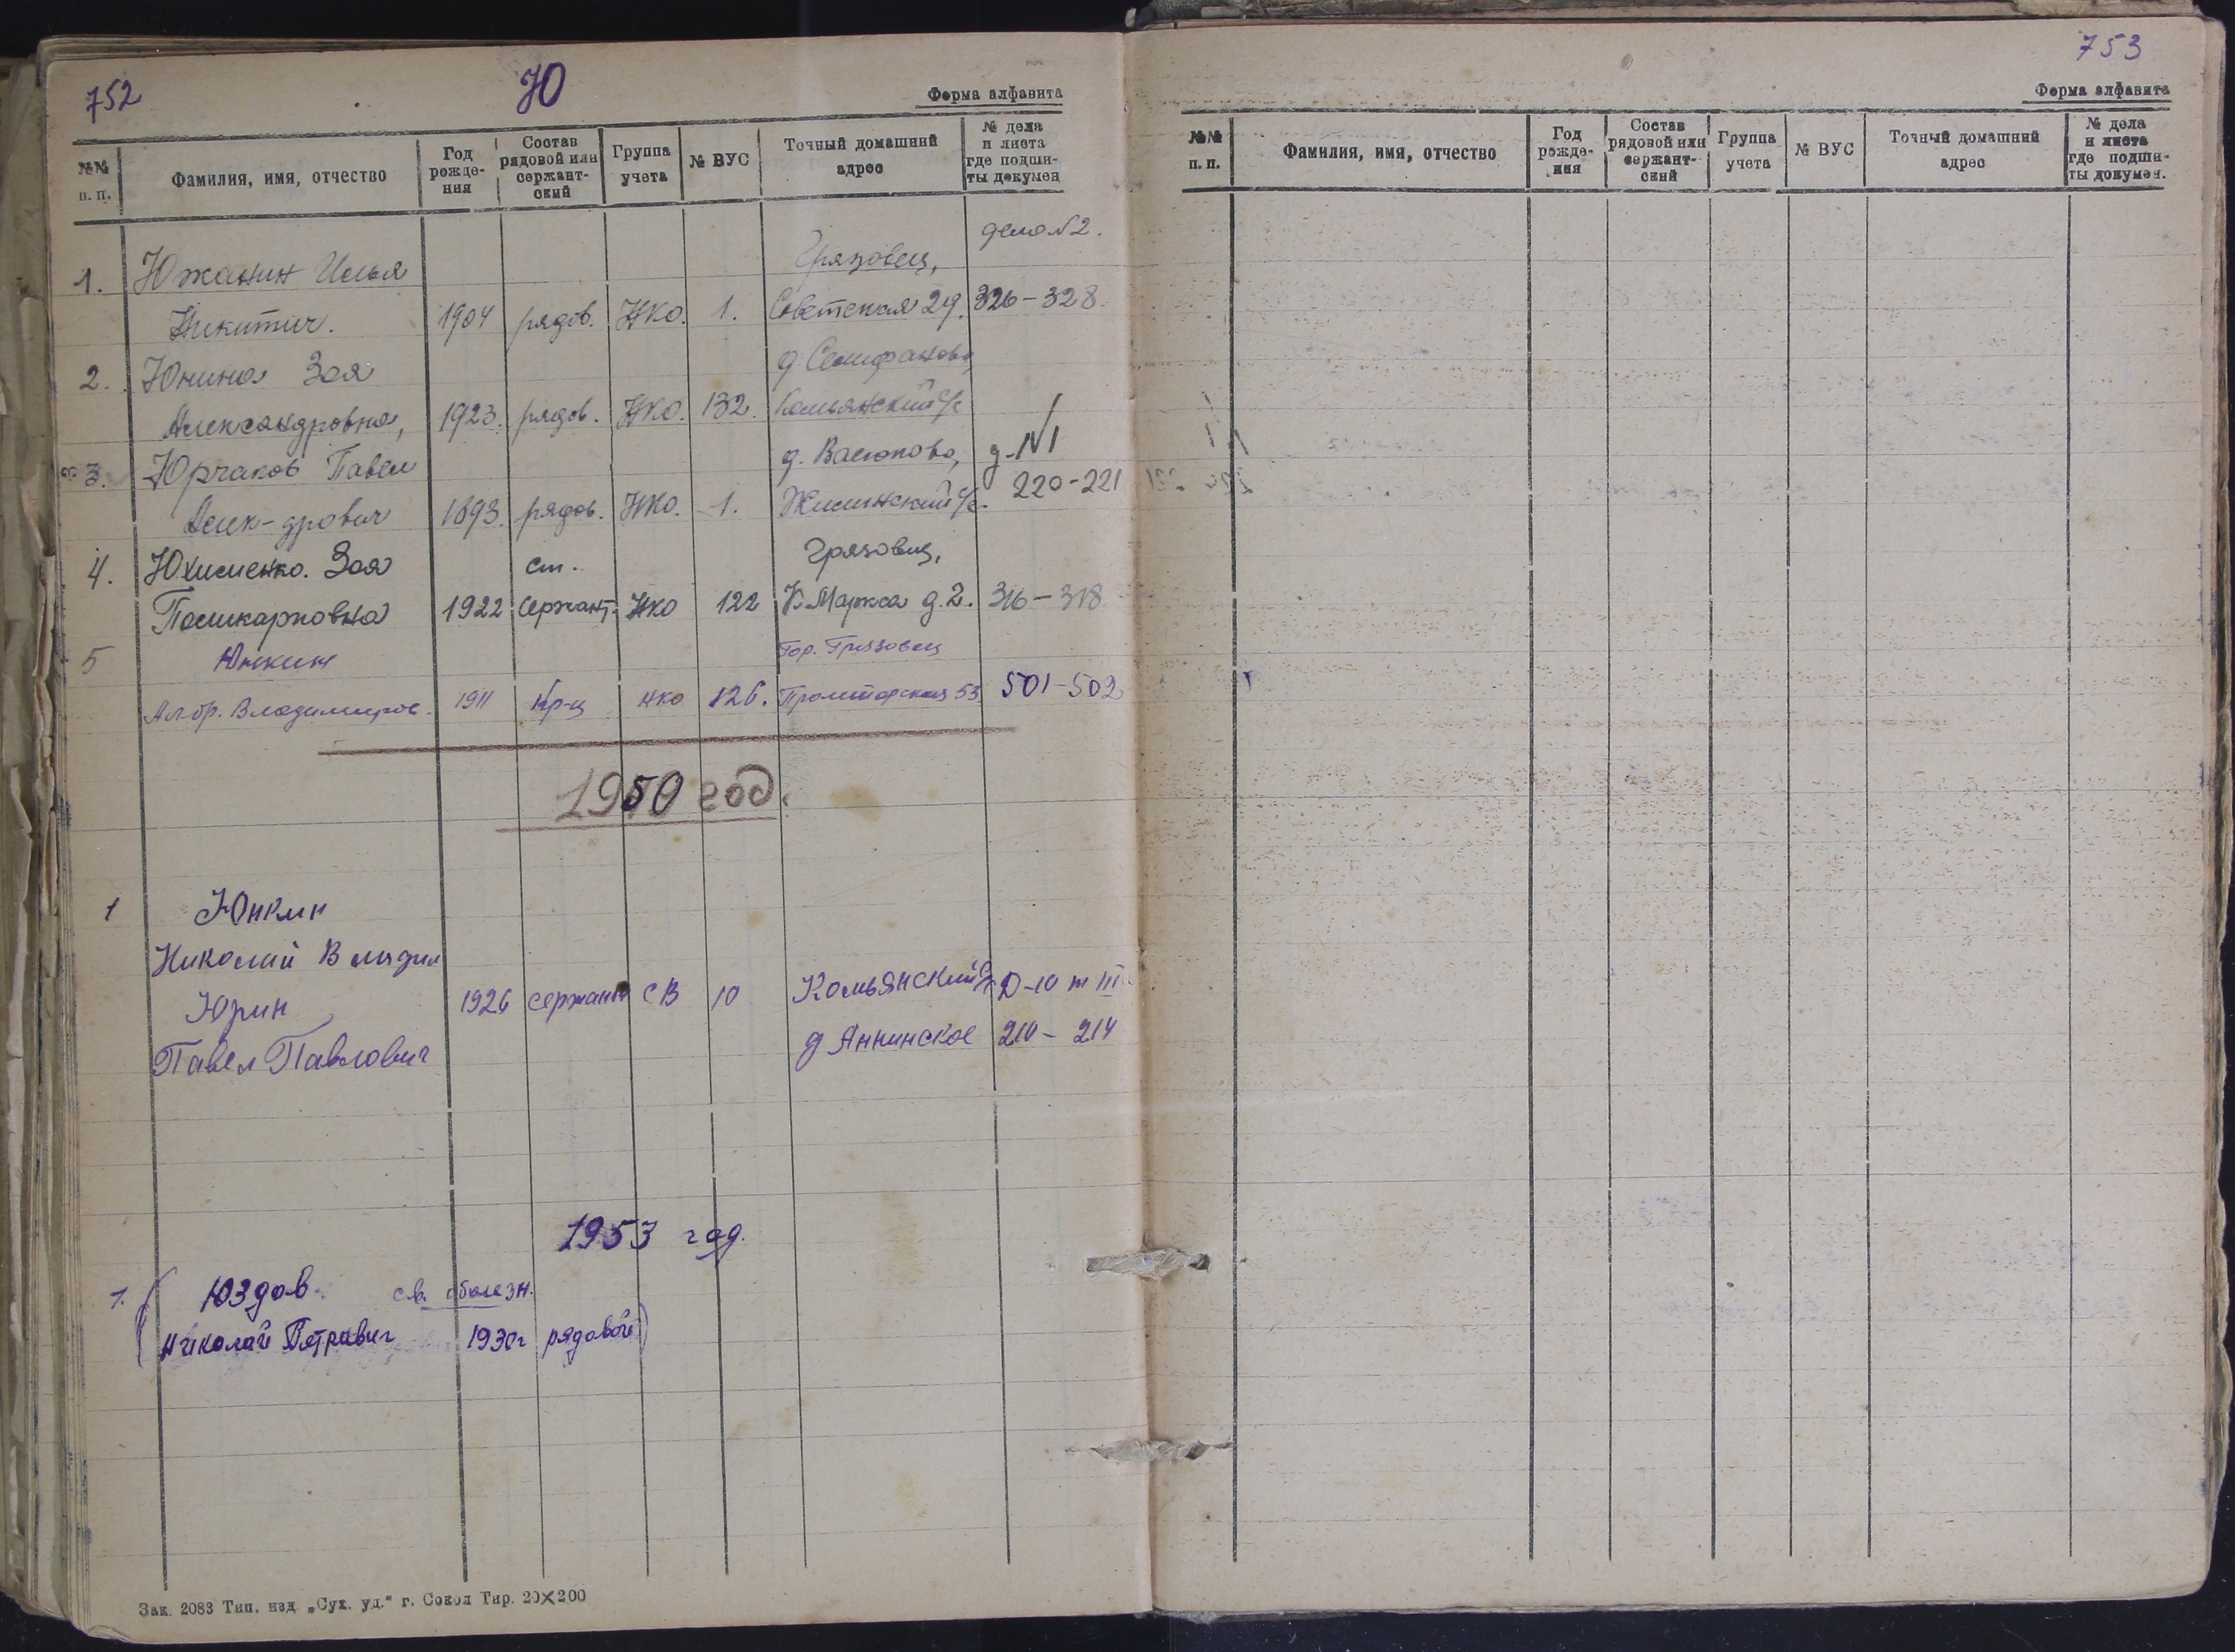 752
Ю
Форма алфавита
№№ п. п.
Фамилия, имя, отчество
Год рожде- ния
Состав рядовой или сержант- ский
Группа учета
№ ВУС
Точный домашний адрес
№ дела и листа где подши- ты докумен
дело №2.
1. Южанин Илья Грязовец,
Никитич. 1904 рядов. НКО. 1. Советская 29. 326-328.
2. Юнина Зоя д. Селифаново,
Александровна, 1923. рядов. НКО. 132. Комьянский с/с
3. Юрчаков Павел д. Васюково, д-№1
Алек-дрович 1893. рядов. НКО. 1. Жилинский с/с. 220-221
4. Юхименко. Зоя ст. Грязовец,
Поликарповна 1922 Сержант. НКО 122 К. Маркса д. 2. 316-318
5 Юнкин Гор. Грязовец
Владимиров. 1911 Кр-ц НКО 126. Пролетарская 53 501-502
1950 год.
1 Юнкин
Николай Владим
Юрин 1926 сержант СВ 10 Комьянский с/с Д-10 т III
Павел Павлович д Аннинское 210-214
1953 год.
1. ( Юздов св. о болезн.
Николай Петрович 1930г рядовой )
Зак. 2083 Тип. изд. „Сух. уд.“ г. Сокол Тир. 20×200
753
Форма алфавита
№№ п. п.
Фамилия, имя, отчество
Год рожде- ния
Состав рядовой или сержант- ский
Группа учета
№ ВУС
Точный домашний адрес
№ дела и листа где подши- ты докумен.